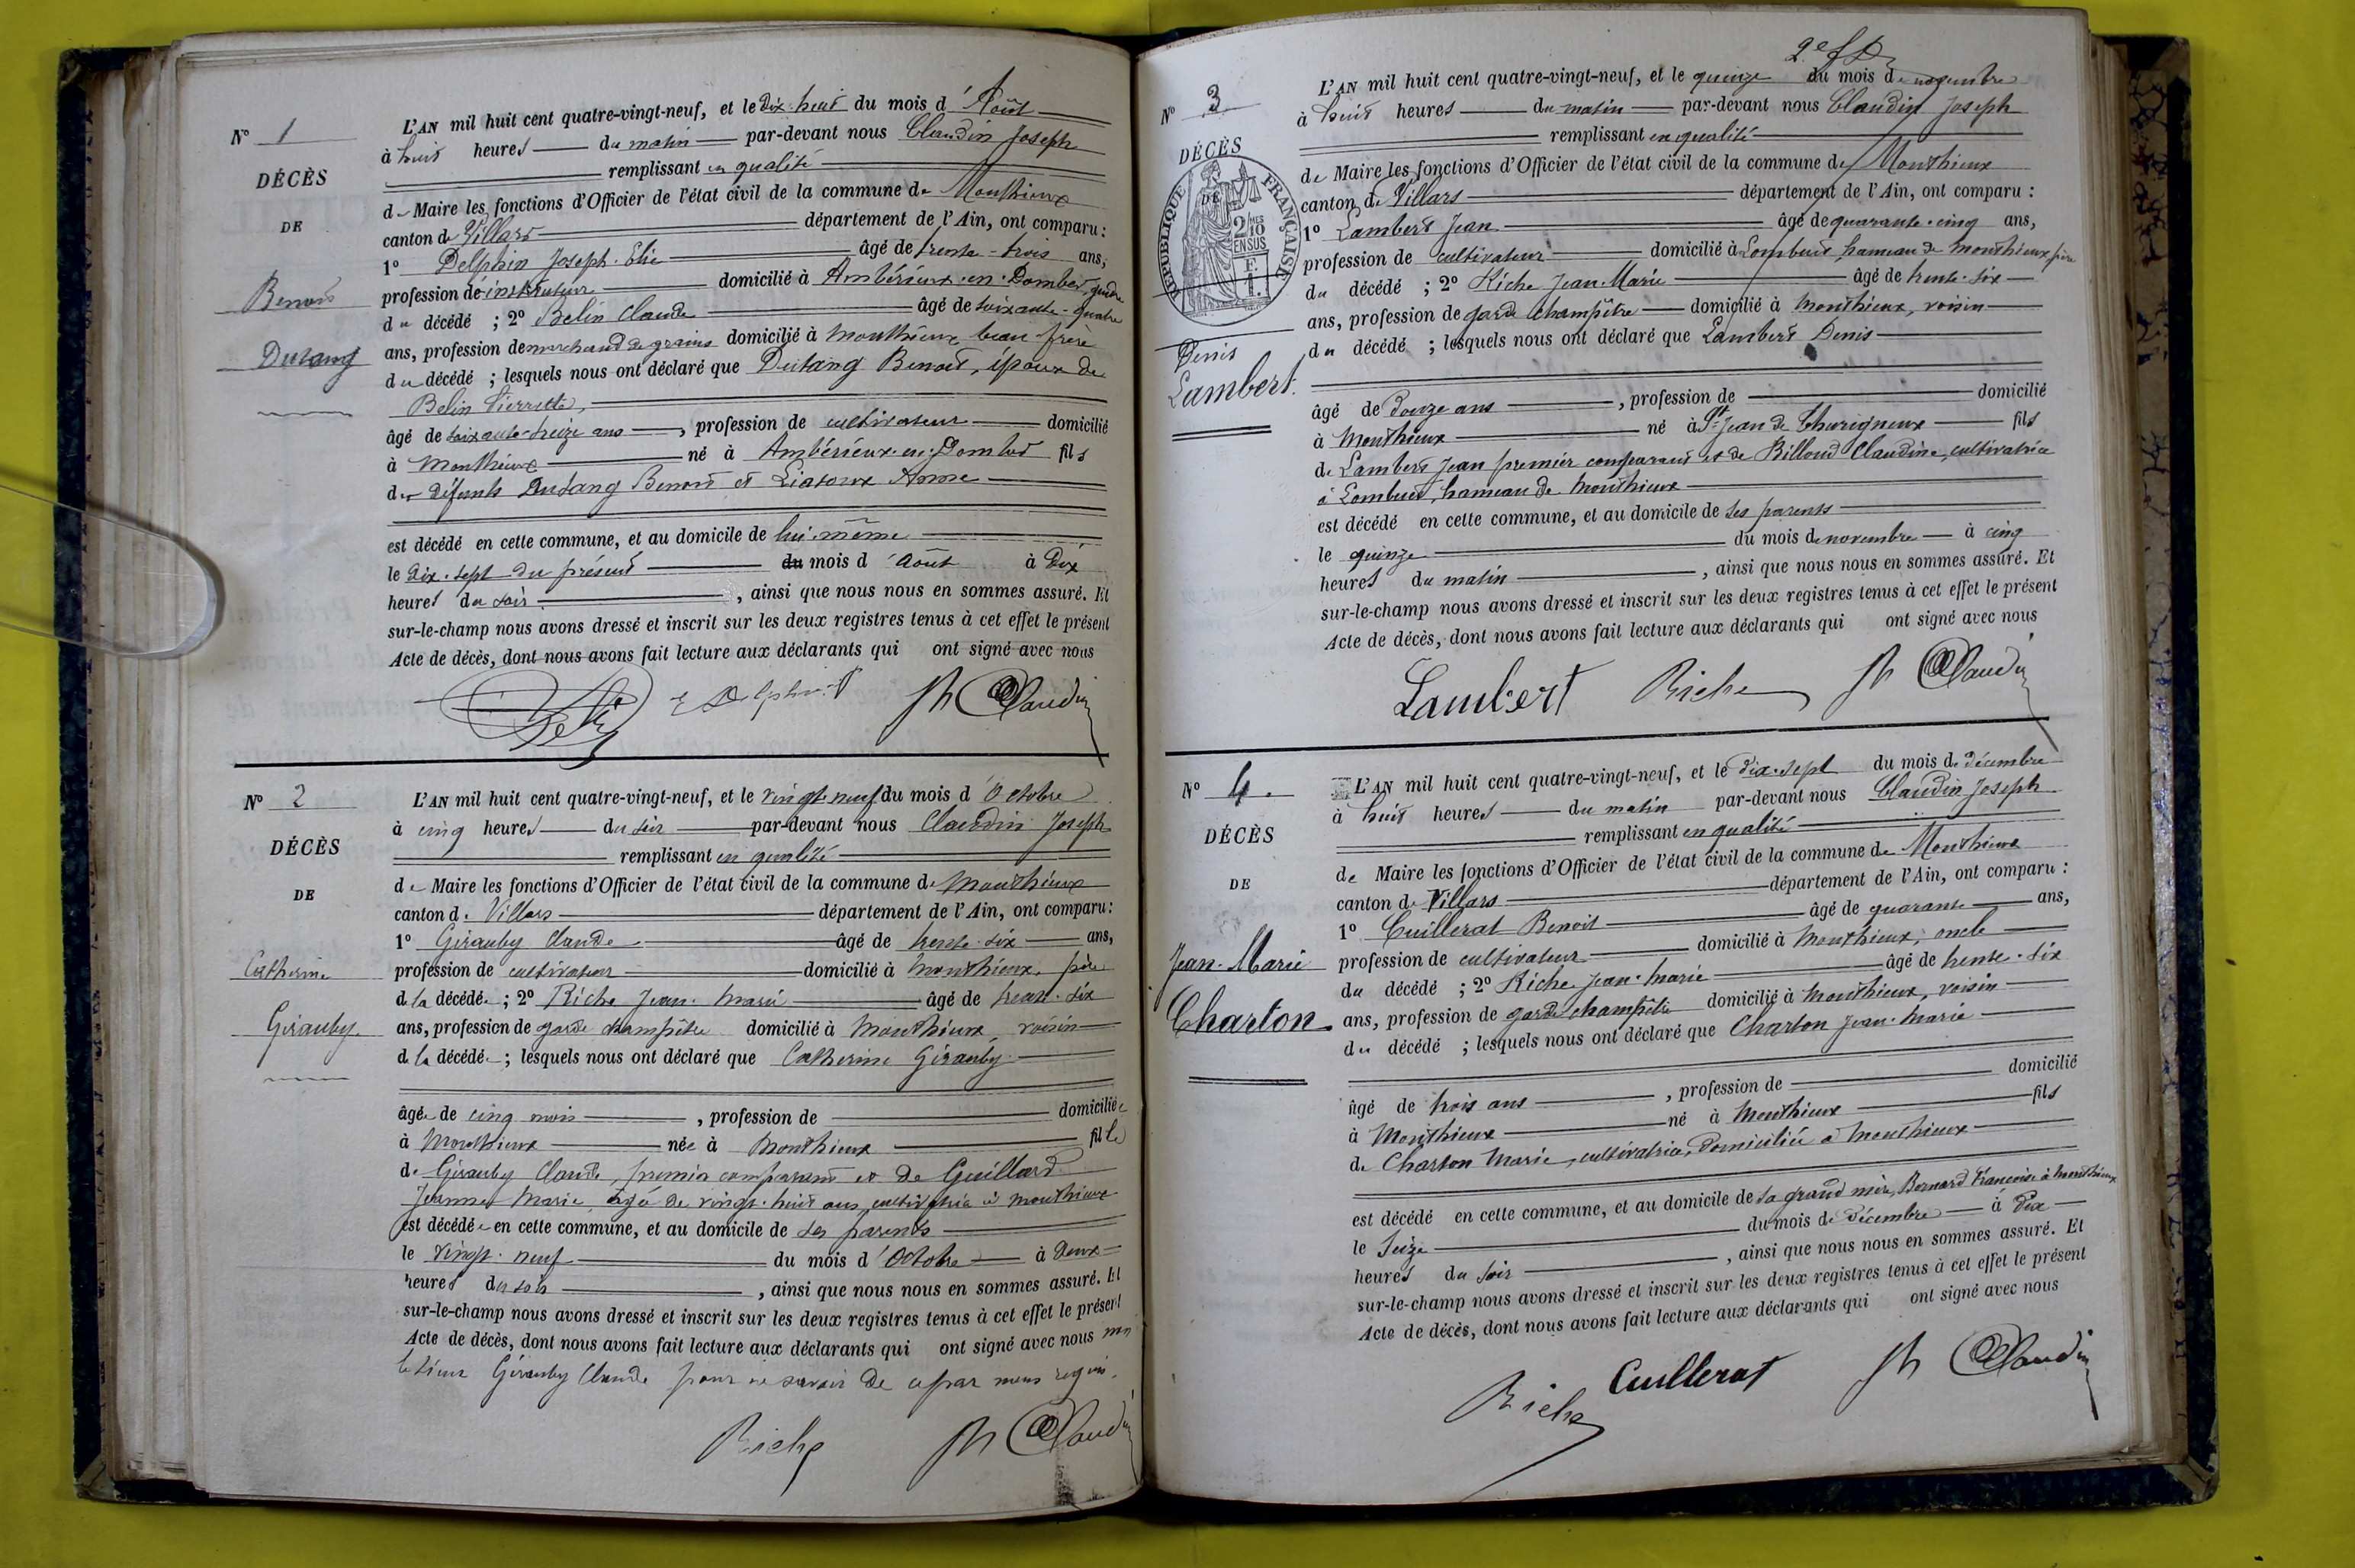 N° 1
DÉCÈS
DE
Benoît
Dutang
L'AN mil huit cent quatre-vingt-neuf, et le dix-huit du mois d'Août
à huit heures du matin par-devant nous Claudin Joseph
remplissant en qualité
de Maire les fonctions d'Officier de l'état civil de la commune de Monthieux
canton de Villars département de l'Ain, ont comparu :
1° Delphin Joseph Elie âgé de trente-trois ans,
profession de instituteur domicilié à Ambérieux-en-Dombes, gendre
du décédé ; 2° Belin Claude âgé de soixante-quatre
ans, profession de marchand de grains domicilié à Monthieux, beau-frère
du décédé ; lesquels nous ont déclaré que Dutang Benoît, époux de
Belin Pierrette,
âgé de soixante-treize ans, profession de cultivateur domicilié
à Monthieux né à Ambérieux-en-Dombes fils
des défunts Dutang Benoît et Anne
est décédé en cette commune, et au domicile de lui-même
le dix-sept du présent du mois d'août à dix
heures du soir, ainsi que nous nous en sommes assuré. Et
sur-le-champ nous avons dressé et inscrit sur les deux registres tenus à cet effet le présent
Acte de décès, dont nous avons fait lecture aux déclarants qui ont signé avec nous
E Delphin Jh Claudin
N° 2
DÉCÈS
DE
Catherine
Girauby
L'AN mil huit cent quatre-vingt-neuf, et le vingt-neuf du mois d'Octobre
à cinq heures du soir par-devant nous Claudin Joseph
remplissant en qualité
de Maire les fonctions d'Officier de l'état civil de la commune de Monthieux
canton de Villars département de l'Ain, ont comparu :
1° Girauby Claude âgé de trente-six ans,
profession de cultivateur domicilié à Monthieux, père
de la décédée ; 2° Riche Jean-Marie âgé de trente-six
ans, profession de garde champêtre domicilié à Monthieux, voisin
de la décédée ; lesquels nous ont déclaré que Catherine Girauby
âgée de cinq mois, profession de domiciliée
à Monthieux née à Monthieux fille
de Girauby Claude, premier comparant et de Guillard
Jeanne Marie, âgée de vingt-huit ans, cultivatrice à Monthieux
est décédée en cette commune, et au domicile de ses parents
le vingt-neuf du mois d'Octobre à deux
heures du soir, ainsi que nous nous en sommes assuré. Et
sur-le-champ nous avons dressé et inscrit sur les deux registres tenus à cet effet le présent
Acte de décès, dont nous avons fait lecture aux déclarants qui ont signé avec nous non
le sieur Girauby Claude pour ne savoir de ce par nous requis.
Riche Jh Claudin
2e
N° 3
DÉCÈS
DE
RÉPUBLIQUE FRANÇAISE
2/10 EN SUS
Denis
Lambert
L'AN mil huit cent quatre-vingt-neuf, et le quinze du mois de novembre
à huit heures du matin par-devant nous Claudin Joseph
remplissant en qualité
de Maire les fonctions d'Officier de l'état civil de la commune de Monthieux
canton de Villars département de l'Ain, ont comparu :
1° Lambert Jean âgé de quarante-cinq ans,
profession de cultivateur domicilié à Lombuis, hameau de Monthieux, père
du décédé ; 2° Riche Jean-Marie âgé de trente-six
ans, profession de garde champêtre domicilié à Monthieux, voisin
du décédé ; lesquels nous ont déclaré que Lambert Denis
âgé de douze ans, profession de domicilié
à Monthieux né à St-Jean de Thurigneux fils
de Lambert Jean premier comparant et de Billoud Claudine, cultivatrice
à Lombuis, hameau de Monthieux
est décédé en cette commune, et au domicile de ses parents
le quinze du mois de novembre à cinq
heures du matin, ainsi que nous nous en sommes assuré. Et
sur-le-champ nous avons dressé et inscrit sur les deux registres tenus à cet effet le présent
Acte de décès, dont nous avons fait lecture aux déclarants qui ont signé avec nous
Lambert Riche Jh Claudin
N° 4.
DÉCÈS
DE
Jean-Marie
Charton
L'AN mil huit cent quatre-vingt-neuf, et le dix-sept du mois de décembre
à huit heures du matin par-devant nous Claudin Joseph
remplissant en qualité
de Maire les fonctions d'Officier de l'état civil de la commune de Monthieux
canton de Villars département de l'Ain, ont comparu :
1° Cuillerat Benoit âgé de quarante ans,
profession de cultivateur domicilié à Monthieux, oncle
du décédé ; 2° Riche Jean-Marie âgé de trente-six
ans, profession de garde champêtre domicilié à Monthieux, voisin
du décédé ; lesquels nous ont déclaré que Charton Jean-Marie
âgé de trois ans, profession de domicilié
à Monthieux né à Monthieux fils
de Charton Marie, cultivatrice, domiciliée à Monthieux
est décédé en cette commune, et au domicile de sa grand mère, Bernard Françoise à Monthieux
le seize du mois de décembre à dix
heures du soir, ainsi que nous nous en sommes assuré. Et
sur-le-champ nous avons dressé et inscrit sur les deux registres tenus à cet effet le présent
Acte de décès, dont nous avons fait lecture aux déclarants qui ont signé avec nous
Riche Cuillerat Jh Claudin